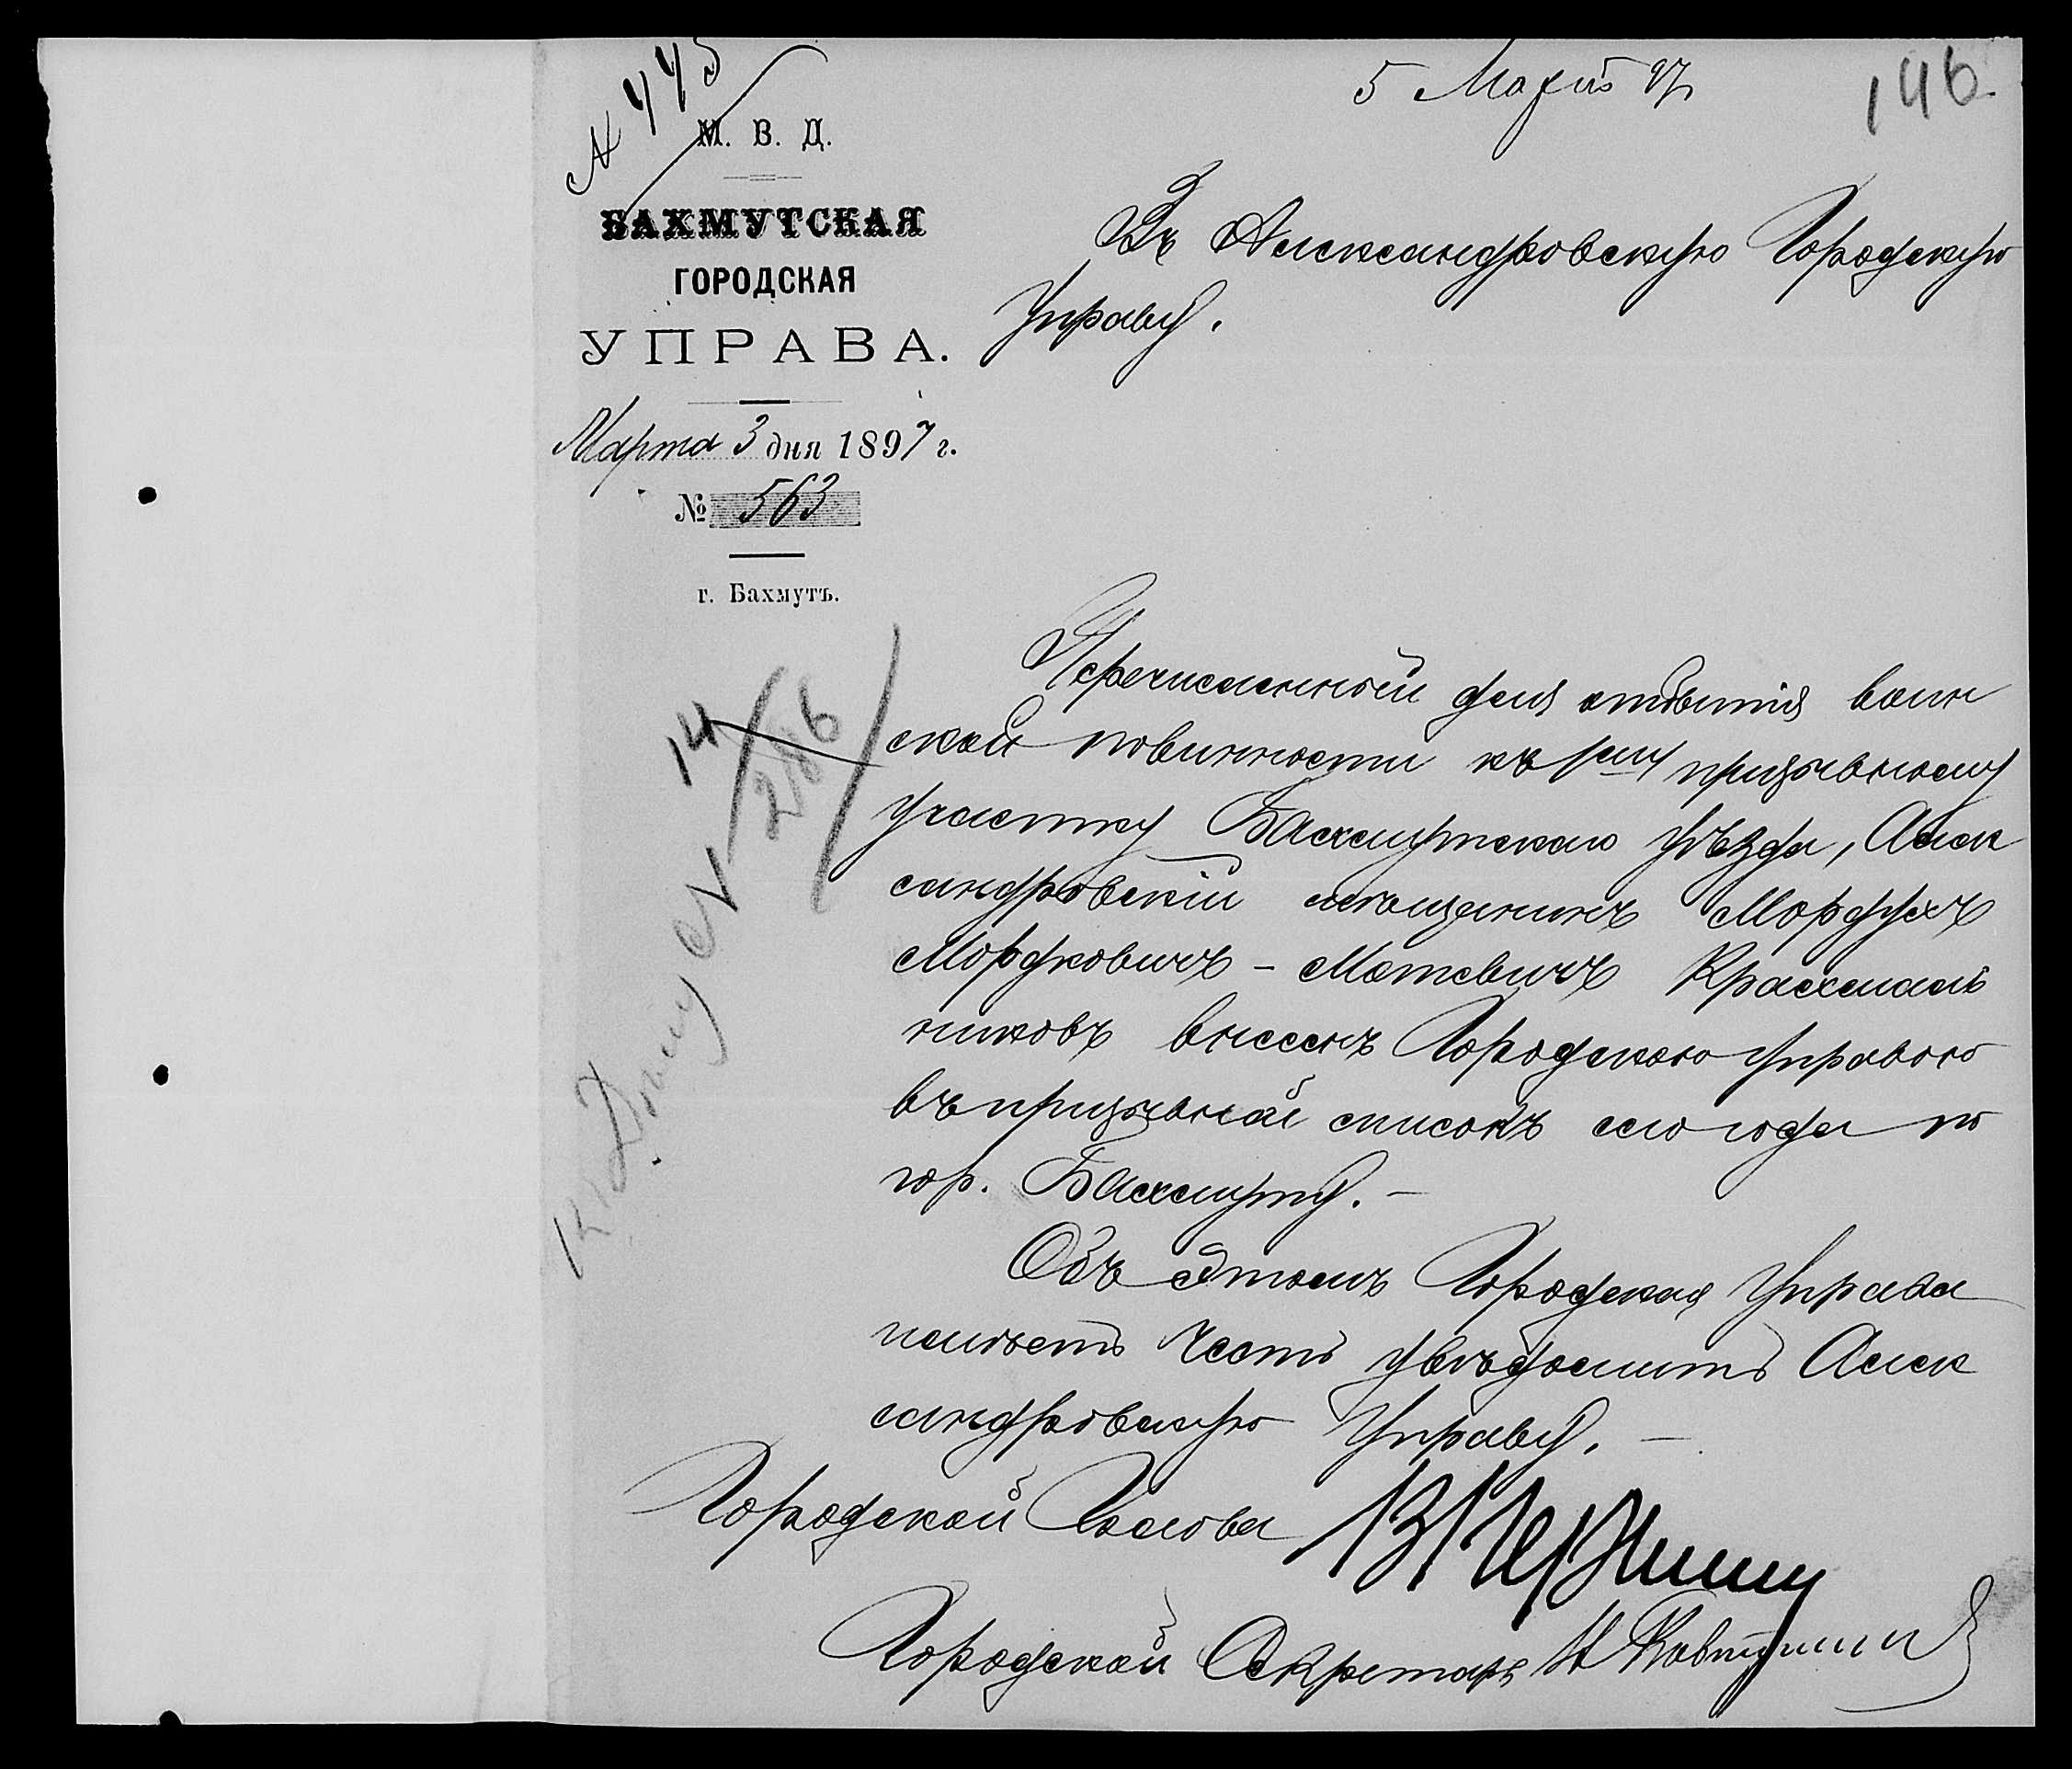 № 445
5 Марта 97
146
М. В. Д.
БАХМУТСКАЯ
ГОРОДСКАЯ
УПРАВА.
Марта 3 дня 1897 г.
№ 563
г. Бахмутъ.
Въ Александровскую Городскую
Управу.
Перечисленный для отбытія воин
ской повинности къ 1му призывному
участку Бахмутскаго уѣзда, Алек
сандровскій мѣщанинъ Мордухъ
Мордковичъ - Мотевичъ Крахмаль
никовъ внесенъ Городскою Управою
въ призывной списокъ сего года по
гор. Бахмуту. —
Объ этомъ Городская Управа
имѣетъ честь увѣдомить Алек
сандровскую Управу. —
Къ Дѣлу № 14/286
Городской Голова
Городской Секретарь